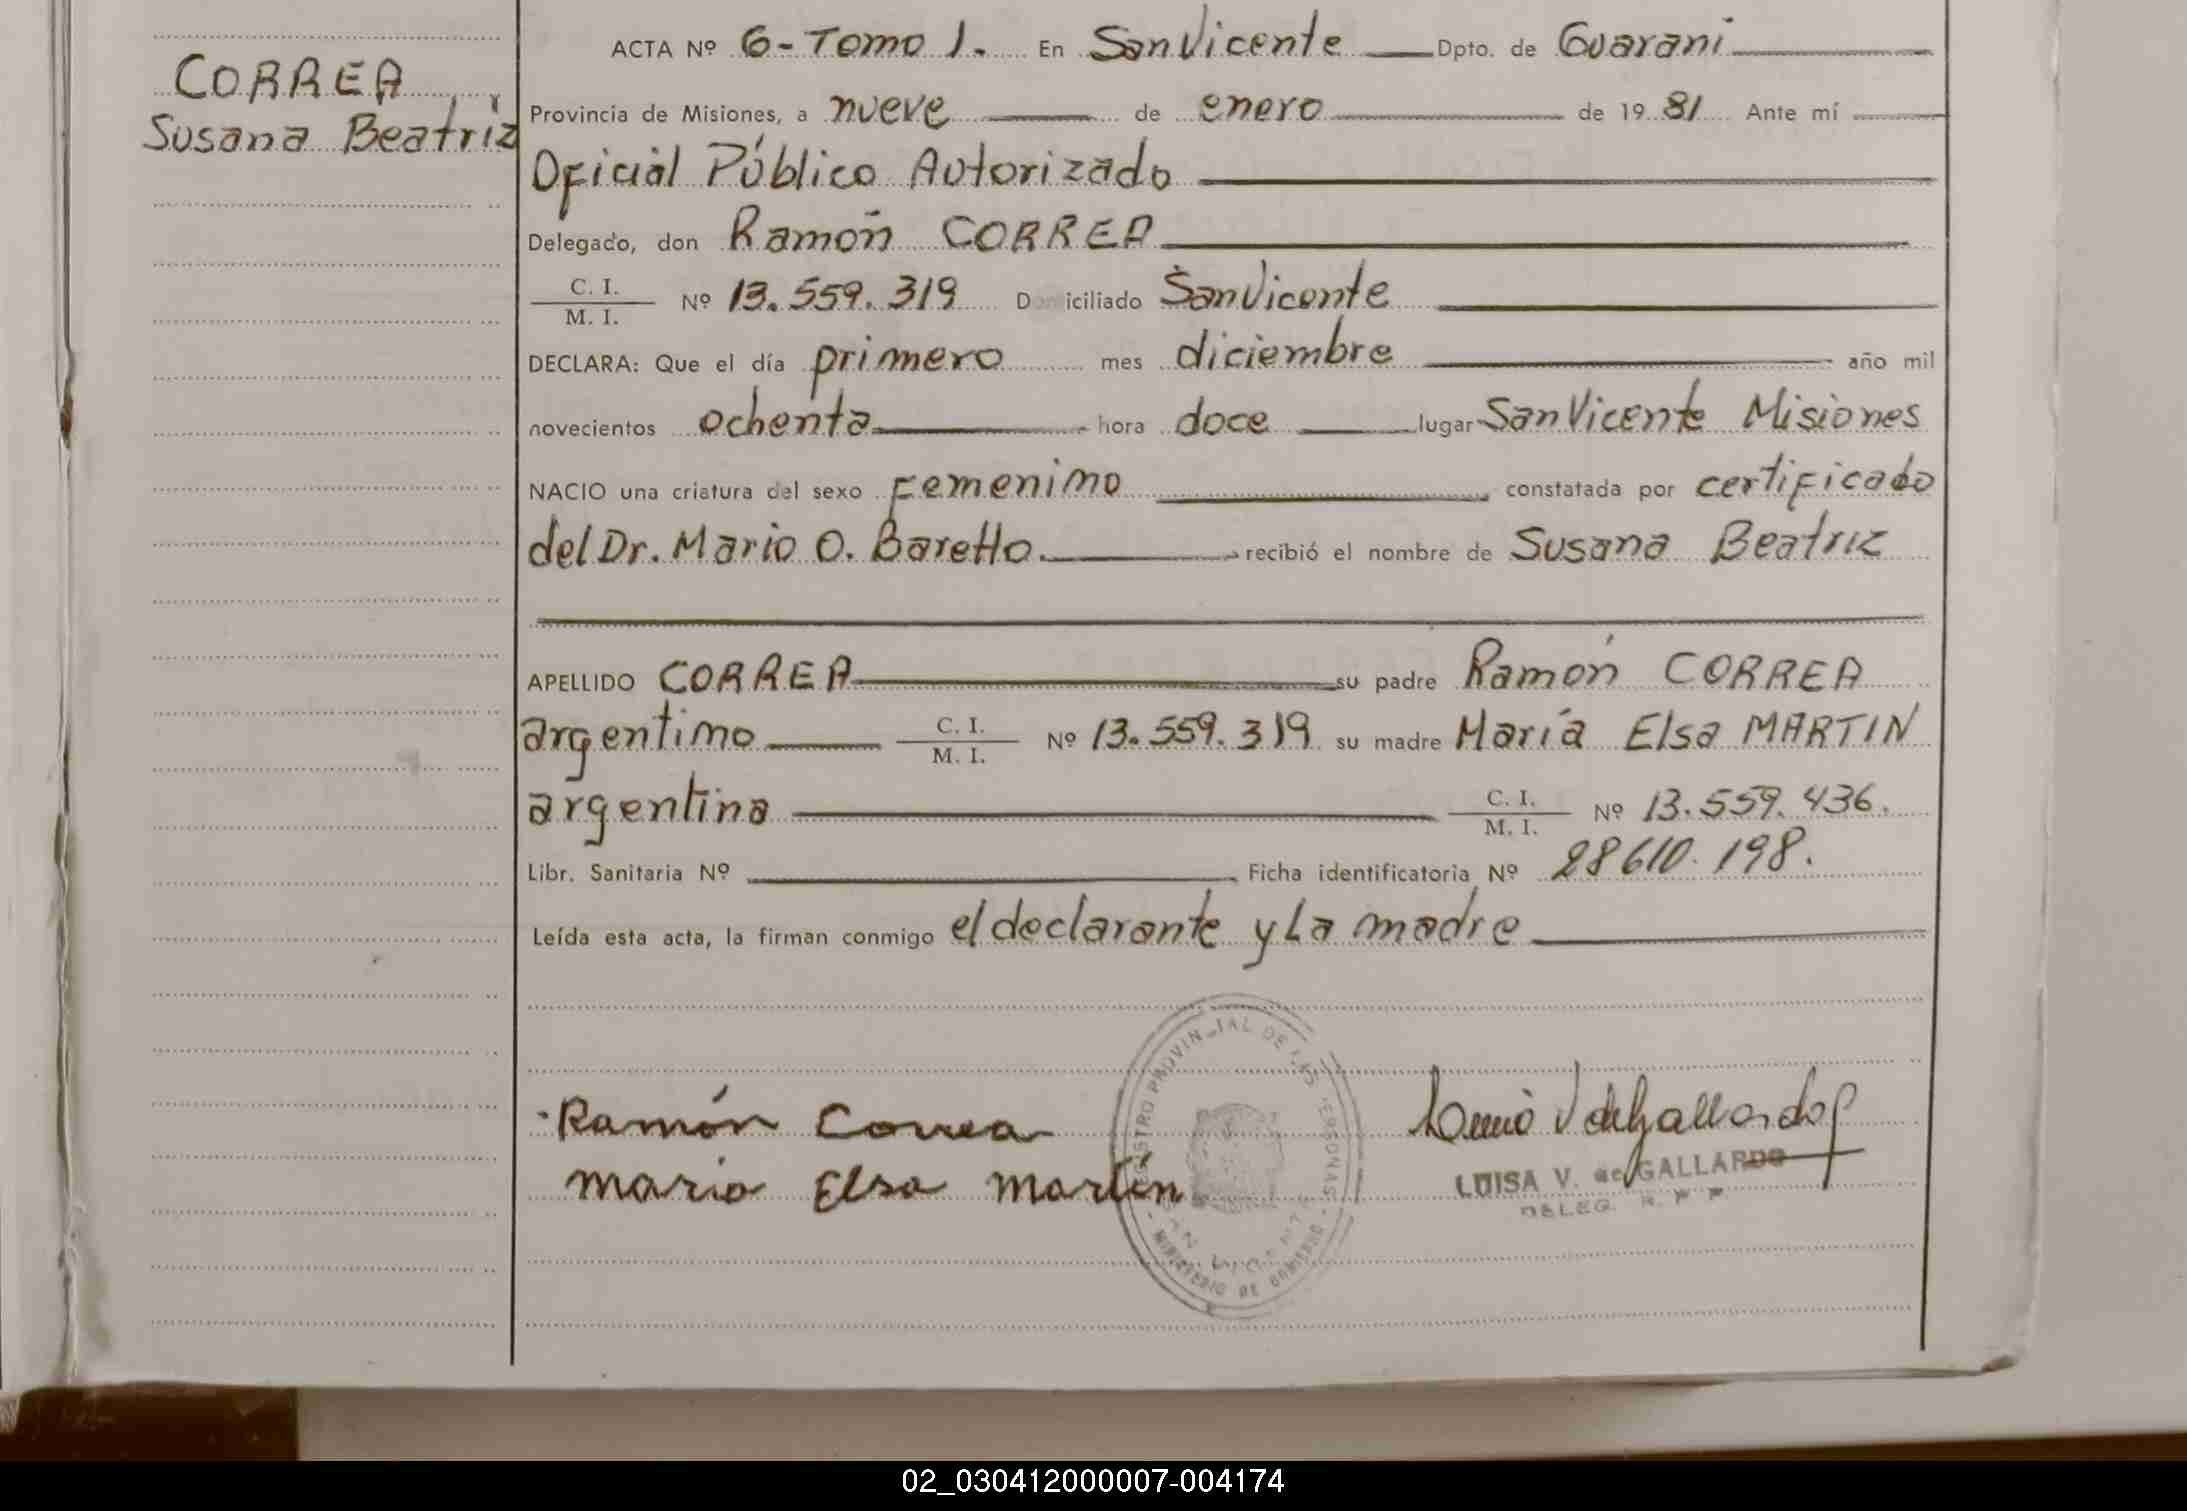 ACTA Nº 6 - Tomo 1. En San Vicente Dpto. de Guaraní
CORREA
Susana Beatriz
Provincia de Misiones, a nueve de enero de 1981 Ante mí
Oficial Público Autorizado
Delegado, don Ramón CORREA
C. I.
M. I. Nº 13.559.319 Domiciliado San Vicente
DECLARA: Que el día primero mes diciembre año mil
novecientos ochenta hora doce lugar San Vicente Misiones
NACIO una criatura del sexo Femenimo constatada por certificado
del Dr. Mario O. Baretto. recibió el nombre de Susana Beatriz
APELLIDO CORREA su padre Ramón CORREA
argentimo C. I. M. I. Nº 13.559.319 su madre María Elsa MARTIN
argentina C. I. M. I. Nº 13.559.436.
Libr. Sanitaria Nº Ficha identificatoria Nº 28610.198.
Leída esta acta, la firman conmigo el declarante y La madre
REGISTRO PROVINCIAL DE LAS PERSONAS
SAN VICENTE
MINISTERIO DE GOBIERNO
Ramón Correa
Maria Elsa Martín
LUISA V. de GALLARDO
DELEG. R. P. P.
02_030412000007-004174